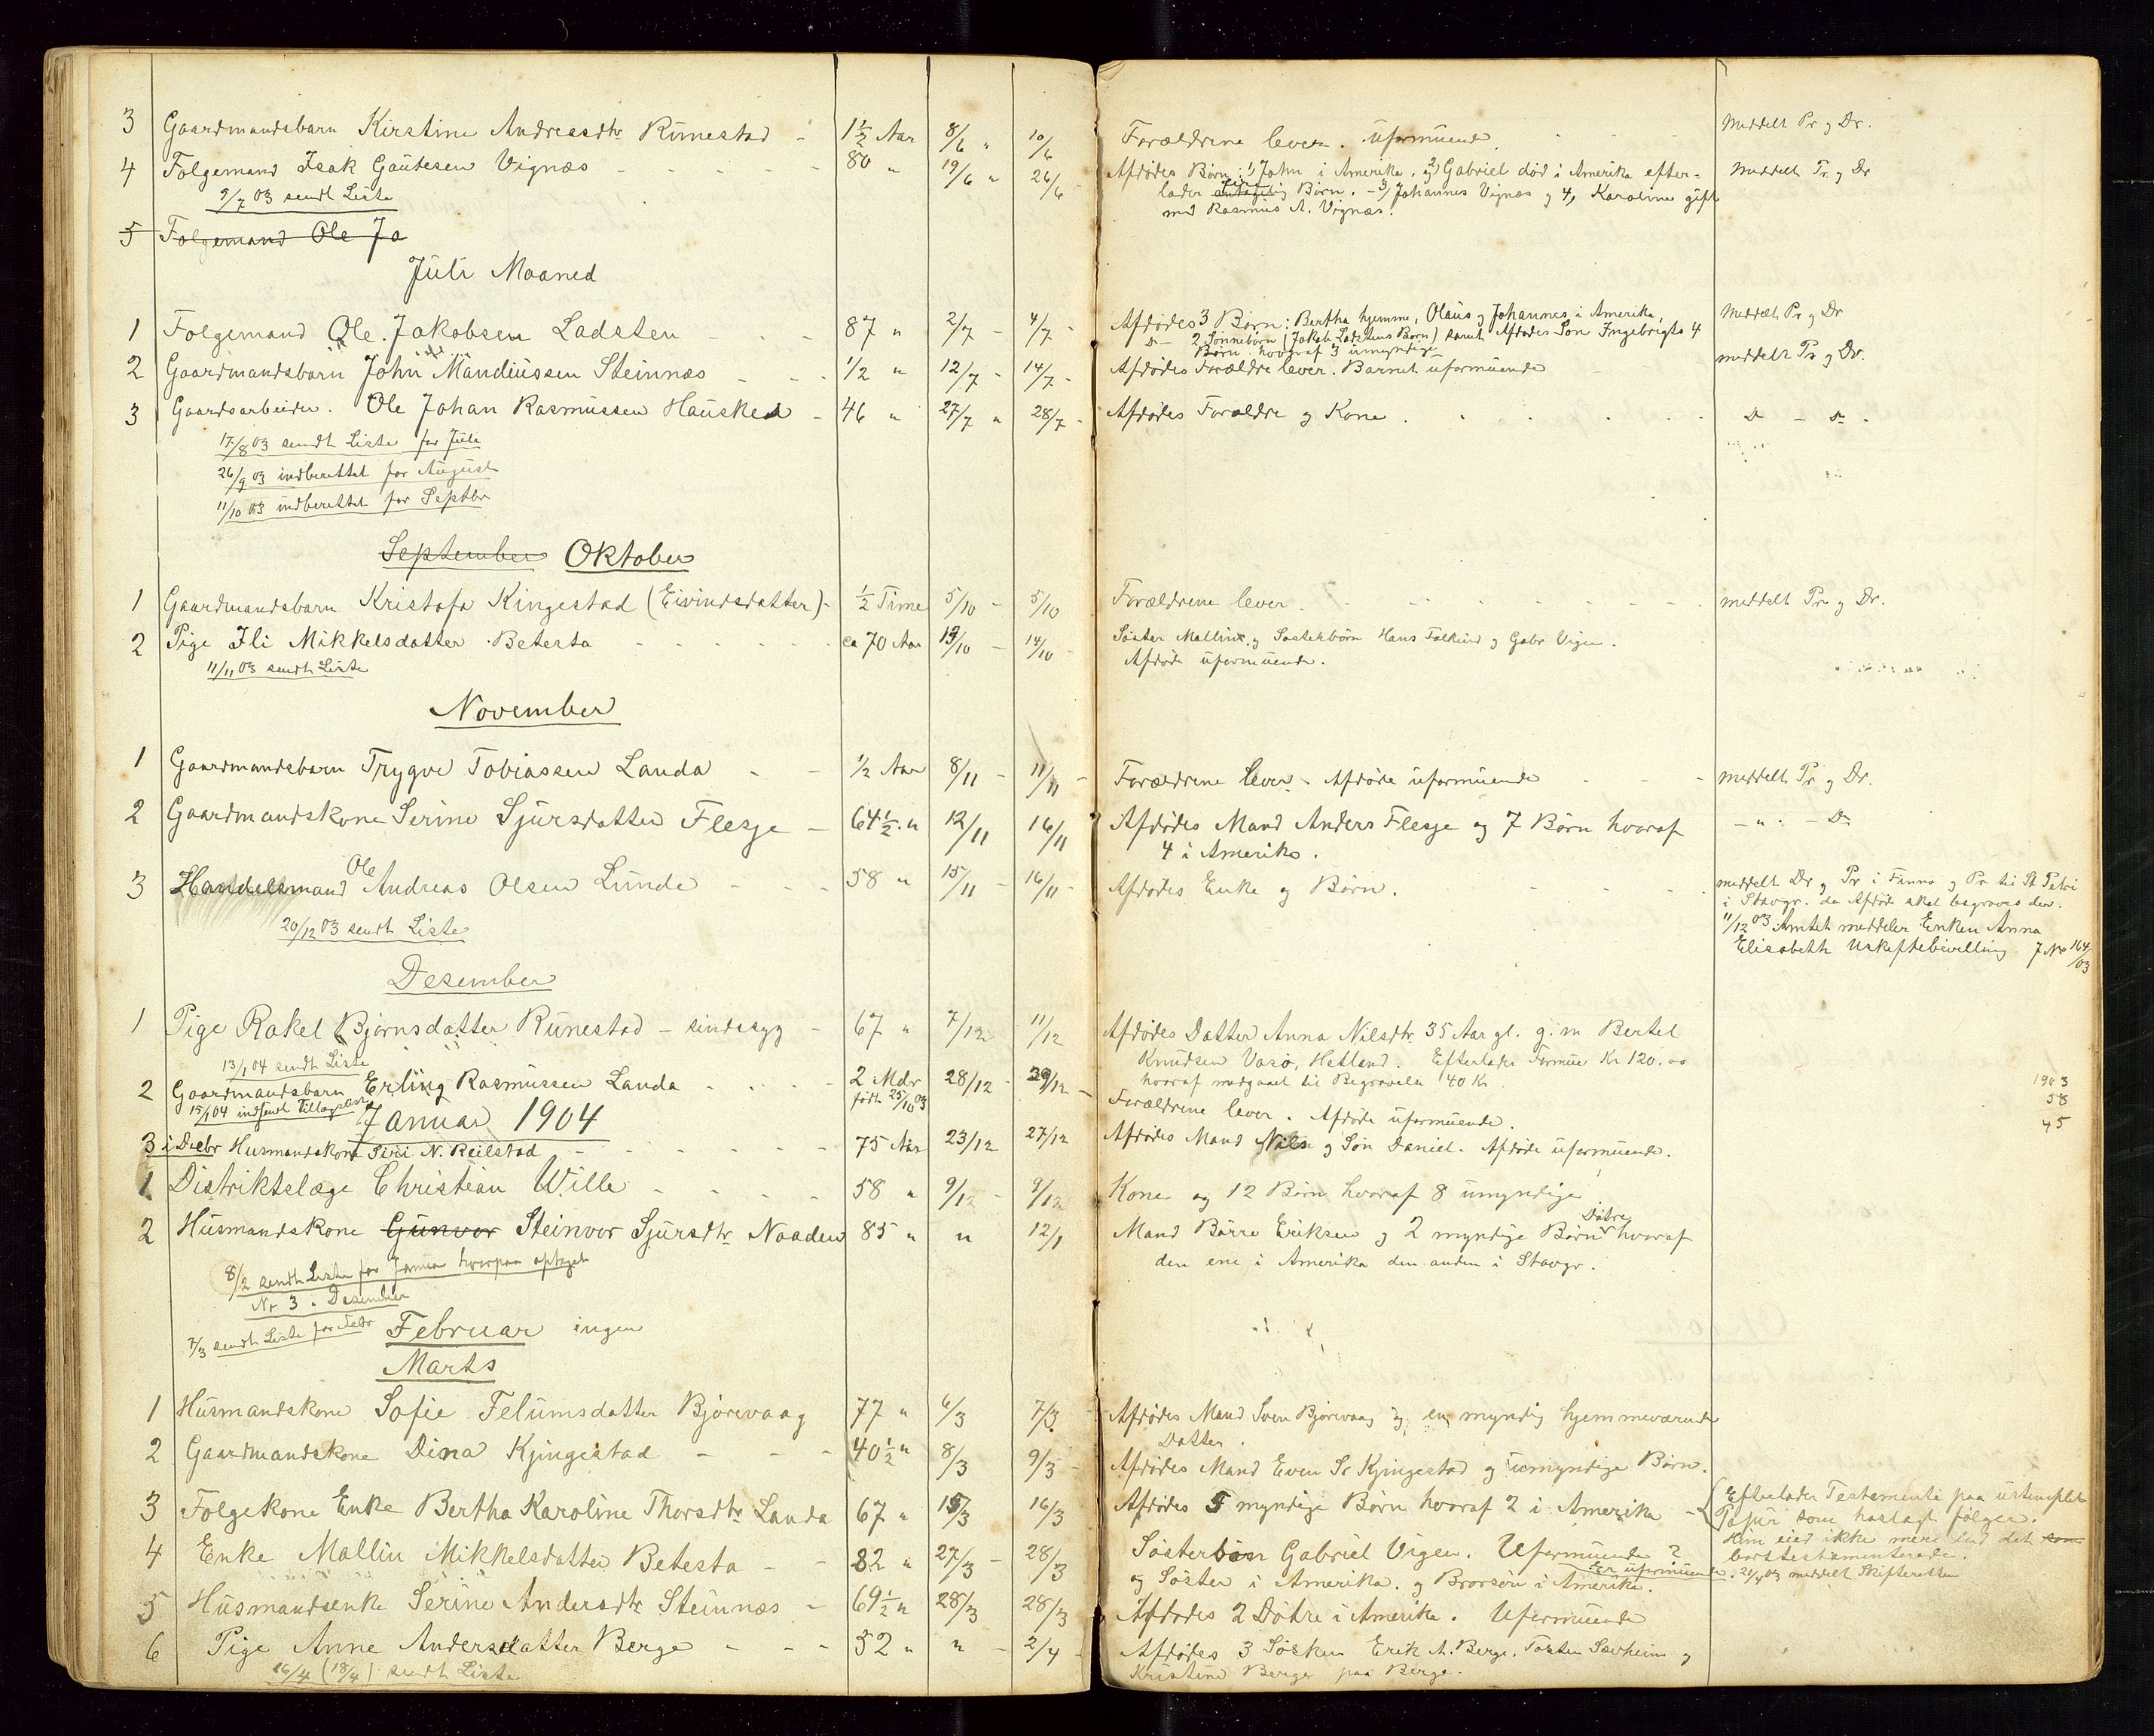 3 Gaardmandsbarn Kirstine Andreasdtr Rünestad - 1½ Aar 8/6 " 10/6 Forældrene lever. üformüende. Meddelt Pr og Dr.
4 Følgemand Isak Gautesen Vignæs - 80 " 19/6 " 26/6 - Afdødes Børn: 1) John i Amerika, 2) Gabriel død i Amerika efter- Meddelt Pr og Dr
9/7 03 sendt Liste lader Børn. - 3, Johannes Vignæs og 4, Karoline gift
med Rasmus A. Vignæs.
5 Følgemand Ole Ja
Jüli Maaned
1 Følgemand Ole Jakobsen Ladsten 87 " 2/7 - 4/7 - Afdødes 3 Børn: Bertha hjemme, Olaüs og Johannes i Amerika, Meddelt Pr og Dr
D- 2 Sønnebørn (Jakob Ladstens Børn) samt Afdødes Søn Ingebrigts 4
Børn hvoraf 3 ümyndige
2 Gaardmandsbarn John Mandiüssen Steinnæs - 1/2 " 12/7 - 14/7 - Afdødes Forældre lever. Barnet üformüende meddelt Pr og Dr.
3 Gaardsarbeider. Ole Johan Rasmüssen Haüsken - 46 " 27/7 " 28/7 - Afdødes Forældre og Kone. D - D -
17/8 03 sendt Liste for Jüli
26/9 03 indberettet for Aügüst
11/10 03 indberettet for Septbr
September Oktober
1 Gaardmandsbarn Kristofa Kingestad (Eivindsdatter) - ½ Time 5/10 - 5/10 Forældrene lever. meddelt Pr og Dr.
2 Pige Ili Mikkelsdatter Betesta ca 70 Aar 13/10 - 14/10 - Søster Malline og Søsterbørn Hans Falkeid og Gabr Vigen.
11/11 03 sendt Liste Afdøde üformüende.
November
1 Gaardmandsbarn Trygve Tobiassen Landa - ½ Aar 8/11 - 11/11 - Forældrene lever - Afdøde üformüende meddelt Pr og Dr.
2 Gaardmandskone Serine Sjürsdatter Flesje - 64½ " 12/11 16/11 Afdødes Mand Anders Flesje og 7 Børn hvoraf - " - D-
4 i Amerika.
3 Handelsmand Ole Andreas Olsen Lünde - 58 " 15/11 - 16/11 - Afdødes Enke og Børn. meddelt Dr og Pr i Finnø og Pr til St Petri
i Stavgr. da Afdøde skal begraves der.
20/12 03 sendt Liste 11/12 03 Amtet meddeler Enken Anna
Elisabeth Uskiftebevilling. J No 164/03
Desember
1 Pige Rakel Bjørnsdatter Rünestad - sindssyg - 67 " 7/12 11/12 Afdødes Datter Anna Nilsdtr 35 Aar gl. g. m Bertel
13/1 04 sendt Liste Knudsen Vasø, Hetland. Efterlader Formüe Kr 120.00
hvoraf medgaaet til Begravelse 40 Kr.
2 Gaardmandsbarn Erling Rasmüssen Landa 2 Mdr 28/12 - 29/12 - Forældrene lever. Afdøde üformüende. 1903
født 25/10 03 58
15/1 04 indsendt Tillægsliste 45
Januar 1904
3 i Decbr Husmandskone Siri N. Reilstad - 75 Aar 23/12 27/12 Afdødes Mand Nils og Søn Daniel. Afdøde üformüende.
1 Distriktslæge Christian Wille - 58 " 9/12 - 9/12 Kone og 12 Børn hvoraf 8 ümyndige
2 Hüsmandskone Günvor Steinvor Sjürsdtr Naaden 85 " " 12/1 Mand Børre Eriksen og 2 myndige Børn Døtre hvoraf
den ene i Amerika den anden i Stavgr.
8/2 sendt Liste for Januar hvorpaa optaget
Nr 3 - Desember
7/3 sendt Liste for Febr Februar ingen
Marts
1 Hüsmandskone Sofie Felümsdatter Bjørevaag 77 " 6/3 7/3. Afdødes Mand Sven Bjørevaag og en myndig hjemmeværende
Datter.
2 Gaardmandskone Dina Kjingestad - 40½ " 8/3 9/3 - Afdødes Mand Even Kjingestad og ümyndige Børn.
3 Følgekone Enke Bertha Karoline Thorsdtr Landa 67 " 15/3 16/3 Afdødes 5 myndige Børn hvoraf 2 i Amerika - Efterlader Testamente paa üstemplet
Papir som hoslagt følger.
4 Enke Mallin Mikkelsdatter Betesta - 82 " 27/3 - 28/3 Søsterbørn Gabriel Vigen. Uformüende? Hün eied ikke mere end det som
borttestamenterede.
og Søster i Amerika. og Brorsøn i Amerika. Er üformüende. 21/4 03 meddelt Skifteretten
5 Hüsmandsenke Serine Andersdtr Steinnæs - 69½ " 28/3 28/3 - Afdødes 2 Døtre i Amerika. Uformüende
6 Pige Anne Andersdatter Berge - 52 " " - 2/4 - Afdødes 3 Søsken Erik A. Berge, Tosten Sævheim og
16/4 (18/4) sendt Liste Kristine Berge paa Berge.